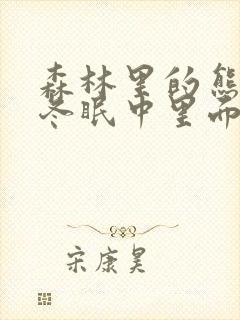 森林里的熊
冬眠中里而
宋康昊